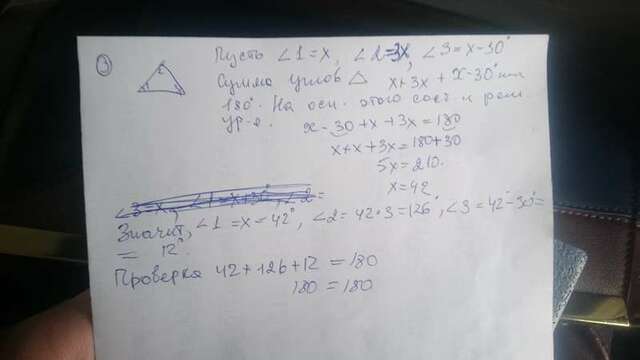 3
Пусть ∠1=x, ∠2=3x, ∠3=x-30°
Сумма углов △ x+3x+x-30° или
180°. На осн. этого сост. и реш.
ур-е.
x-30+x+3x=180
x+x+3x=180+30
5x=210.
x=42
Значит, ∠1=x=42°, ∠2=42·3=126°, ∠3=42°-30°=
= 12°.
Проверка 42+126+12=180
180=180